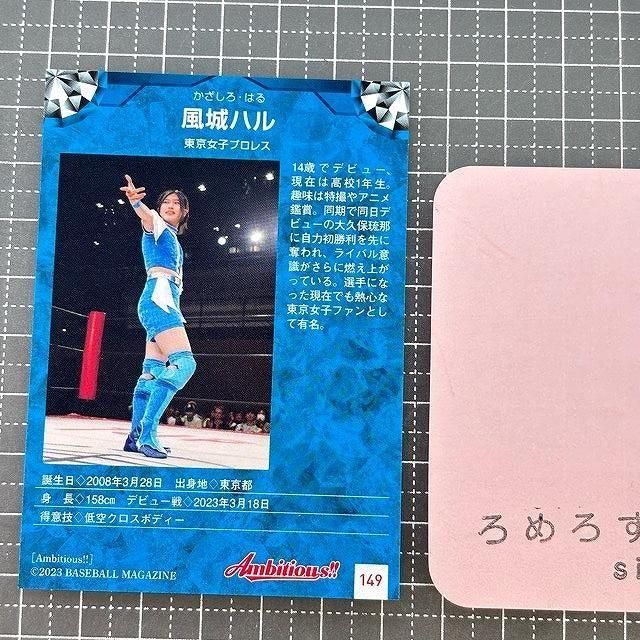 かざしろ・はる
風城ハル
東京女子プロレス
14歳でデビュー、
現在は高校1年生。
趣味は特撮やアニメ
鑑賞。同期で同日デ
ビューの大久保琉那
に自力初勝利を先に
奪われ、ライバル意
識がさらに燃え上が
っている。選手にな
った現在でも熱心な
東京女子ファンとし
て有名。
誕生日◇2008年3月28日 出身地◇東京都
身 長◇158cm デビュー戦◇2023年3月18日
得意技◇低空クロスボディー
[Ambitious!!]
©2023 BASEBALL MAGAZINE
Ambitious!!
149
ろめろす
si